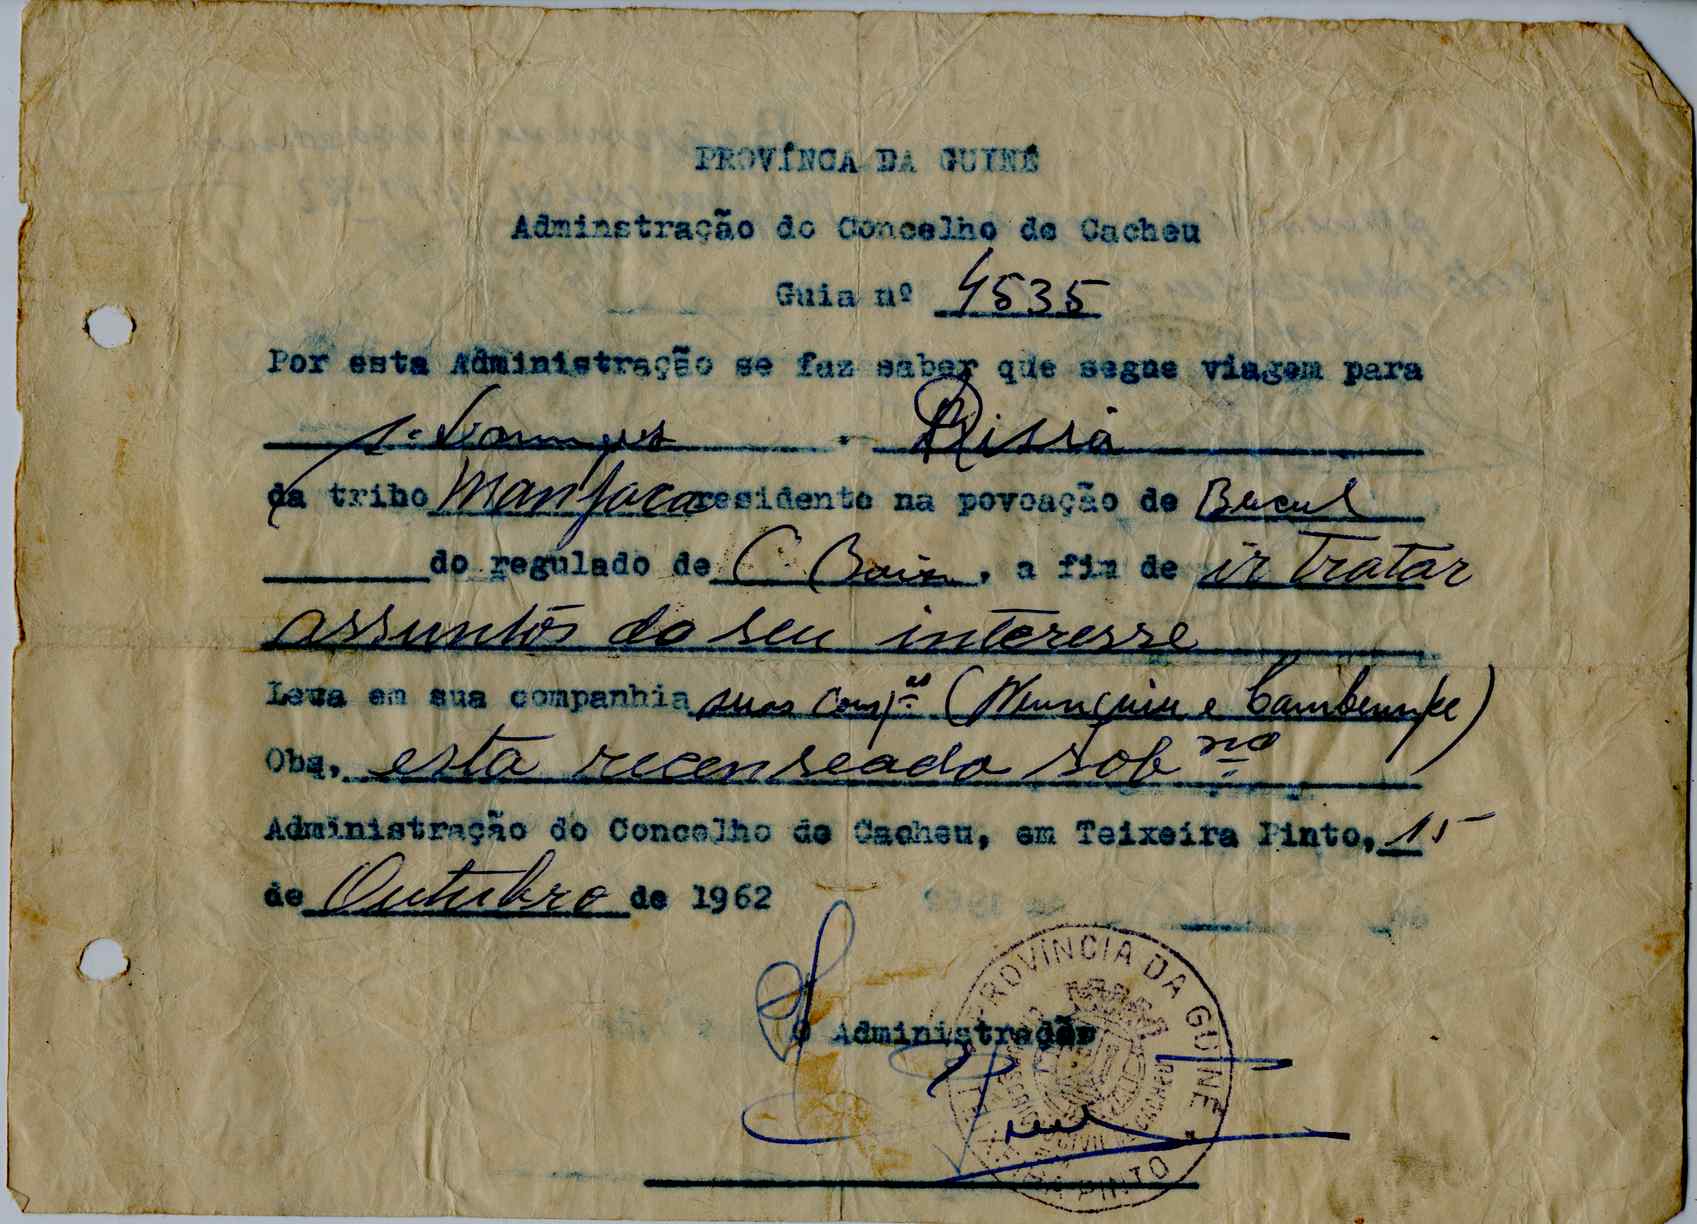 PROVÍNCA DA GUINÉ
Adminstração do Concelho de Cacheu
Guia nº 4535
Por esta Administração se faz saber que segue viagem para
S. Domingos . Bissá
da tribo Manjaca residente na povoação de Bucul
do regulado de C. , a fim de ir tratar
assuntos do seu interesse
Leva em sua companhia suas comp.as ( e )
Obs, está recenseado sob nº
Administração do Concelho de Cacheu, em Teixeira Pinto, 15
de Outubro de 1962
O Administrador
PROVÍNCIA DA GUINÉ
PINTO